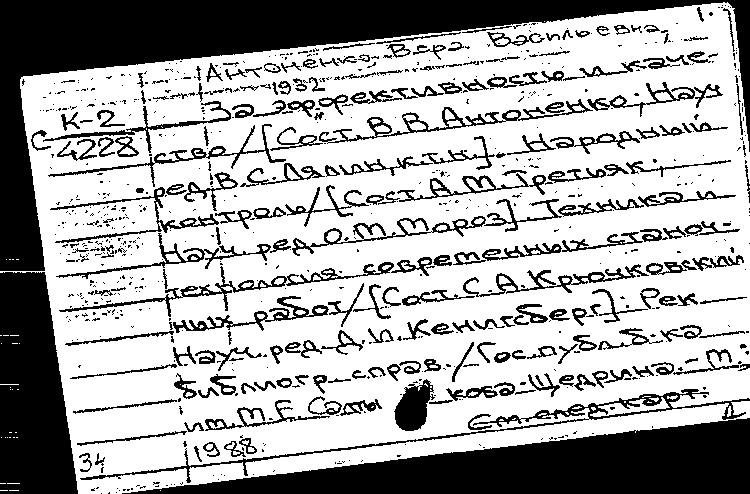 1.
Антоненко Вера Васильевна,
1932
К-2
За эффективность и каче-
С 4228
ство/[Сост. В.В. Антоненко; Науч
ред. В.С. Лялин, к.т.н.]. Народный
контроль/[Сост. А.М. Третьяк;
Науч. ред. О.М. Мороз]. Техника и
технология современных станоч-
ных работ/[Сост. С.А. Крючковский
Науч. ред. Д.И. Кенигсберг]: Рек
библиогр. справ./Гос. публ. б-ка
им. М.Е. Салты кова-Щедрина.-М.:
См. след. карт.
34
1988.
Д